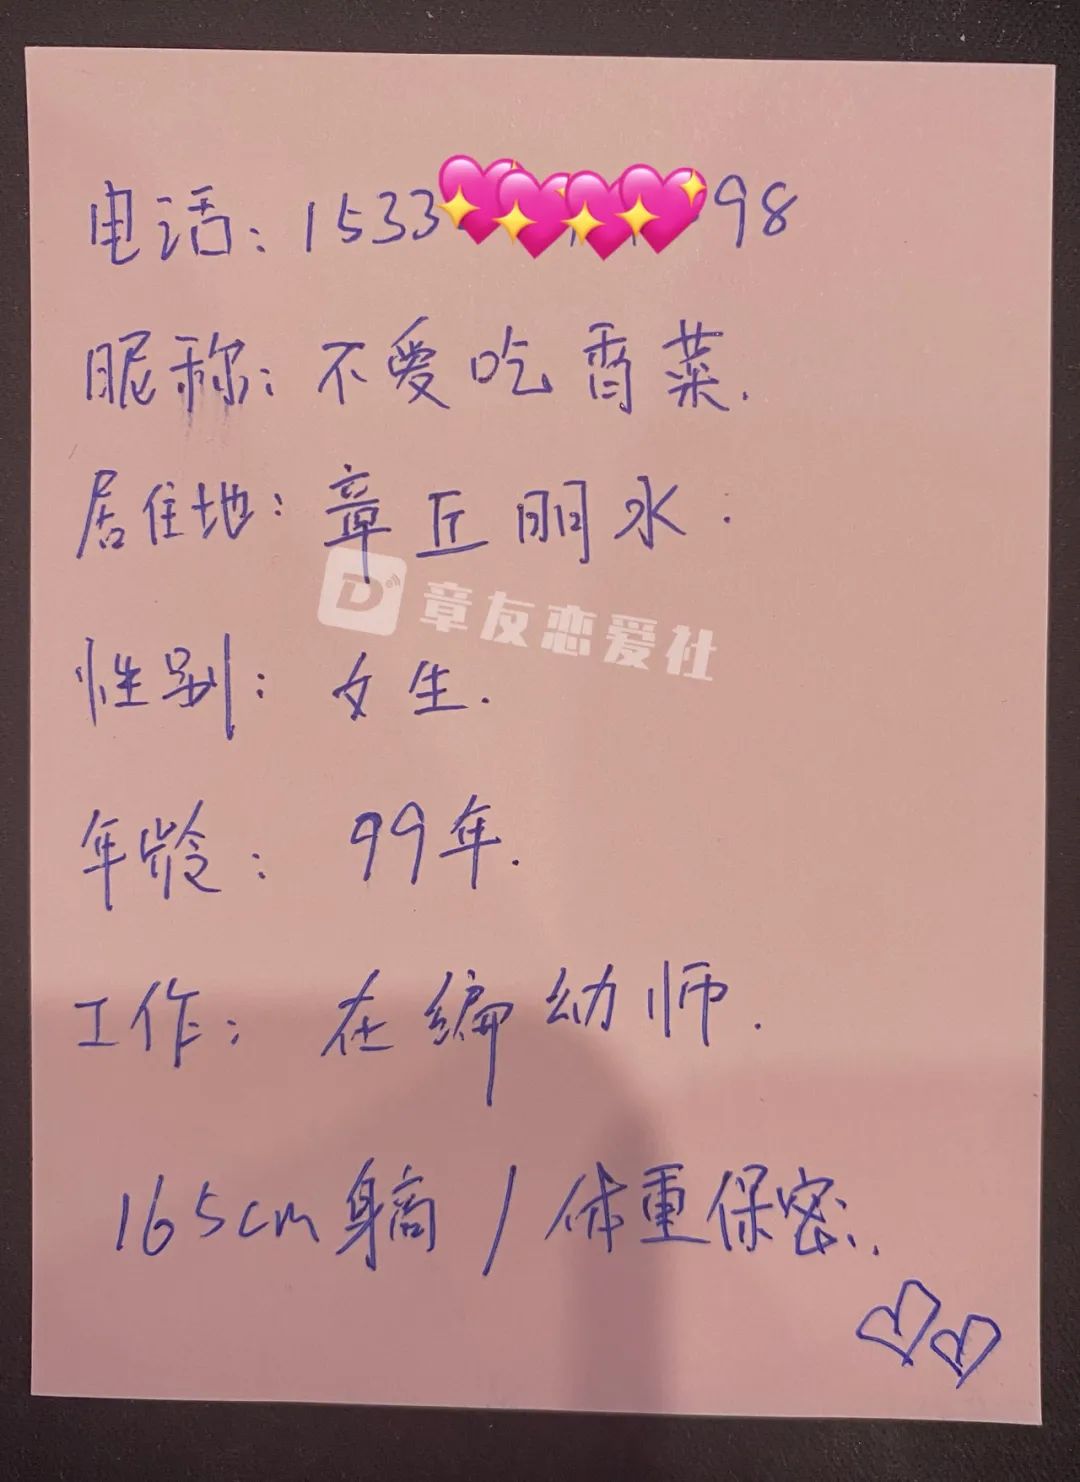 电话: 1533 98
昵称: 不爱吃香菜.
居住地: 章丘明水.
章友恋爱社
性别: 女生.
年龄: 99年.
工作: 在编幼师.
165cm身高 / 体重保密..